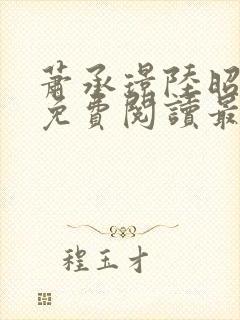 蕭承璟陸昭
免費閱讀最
程玉才